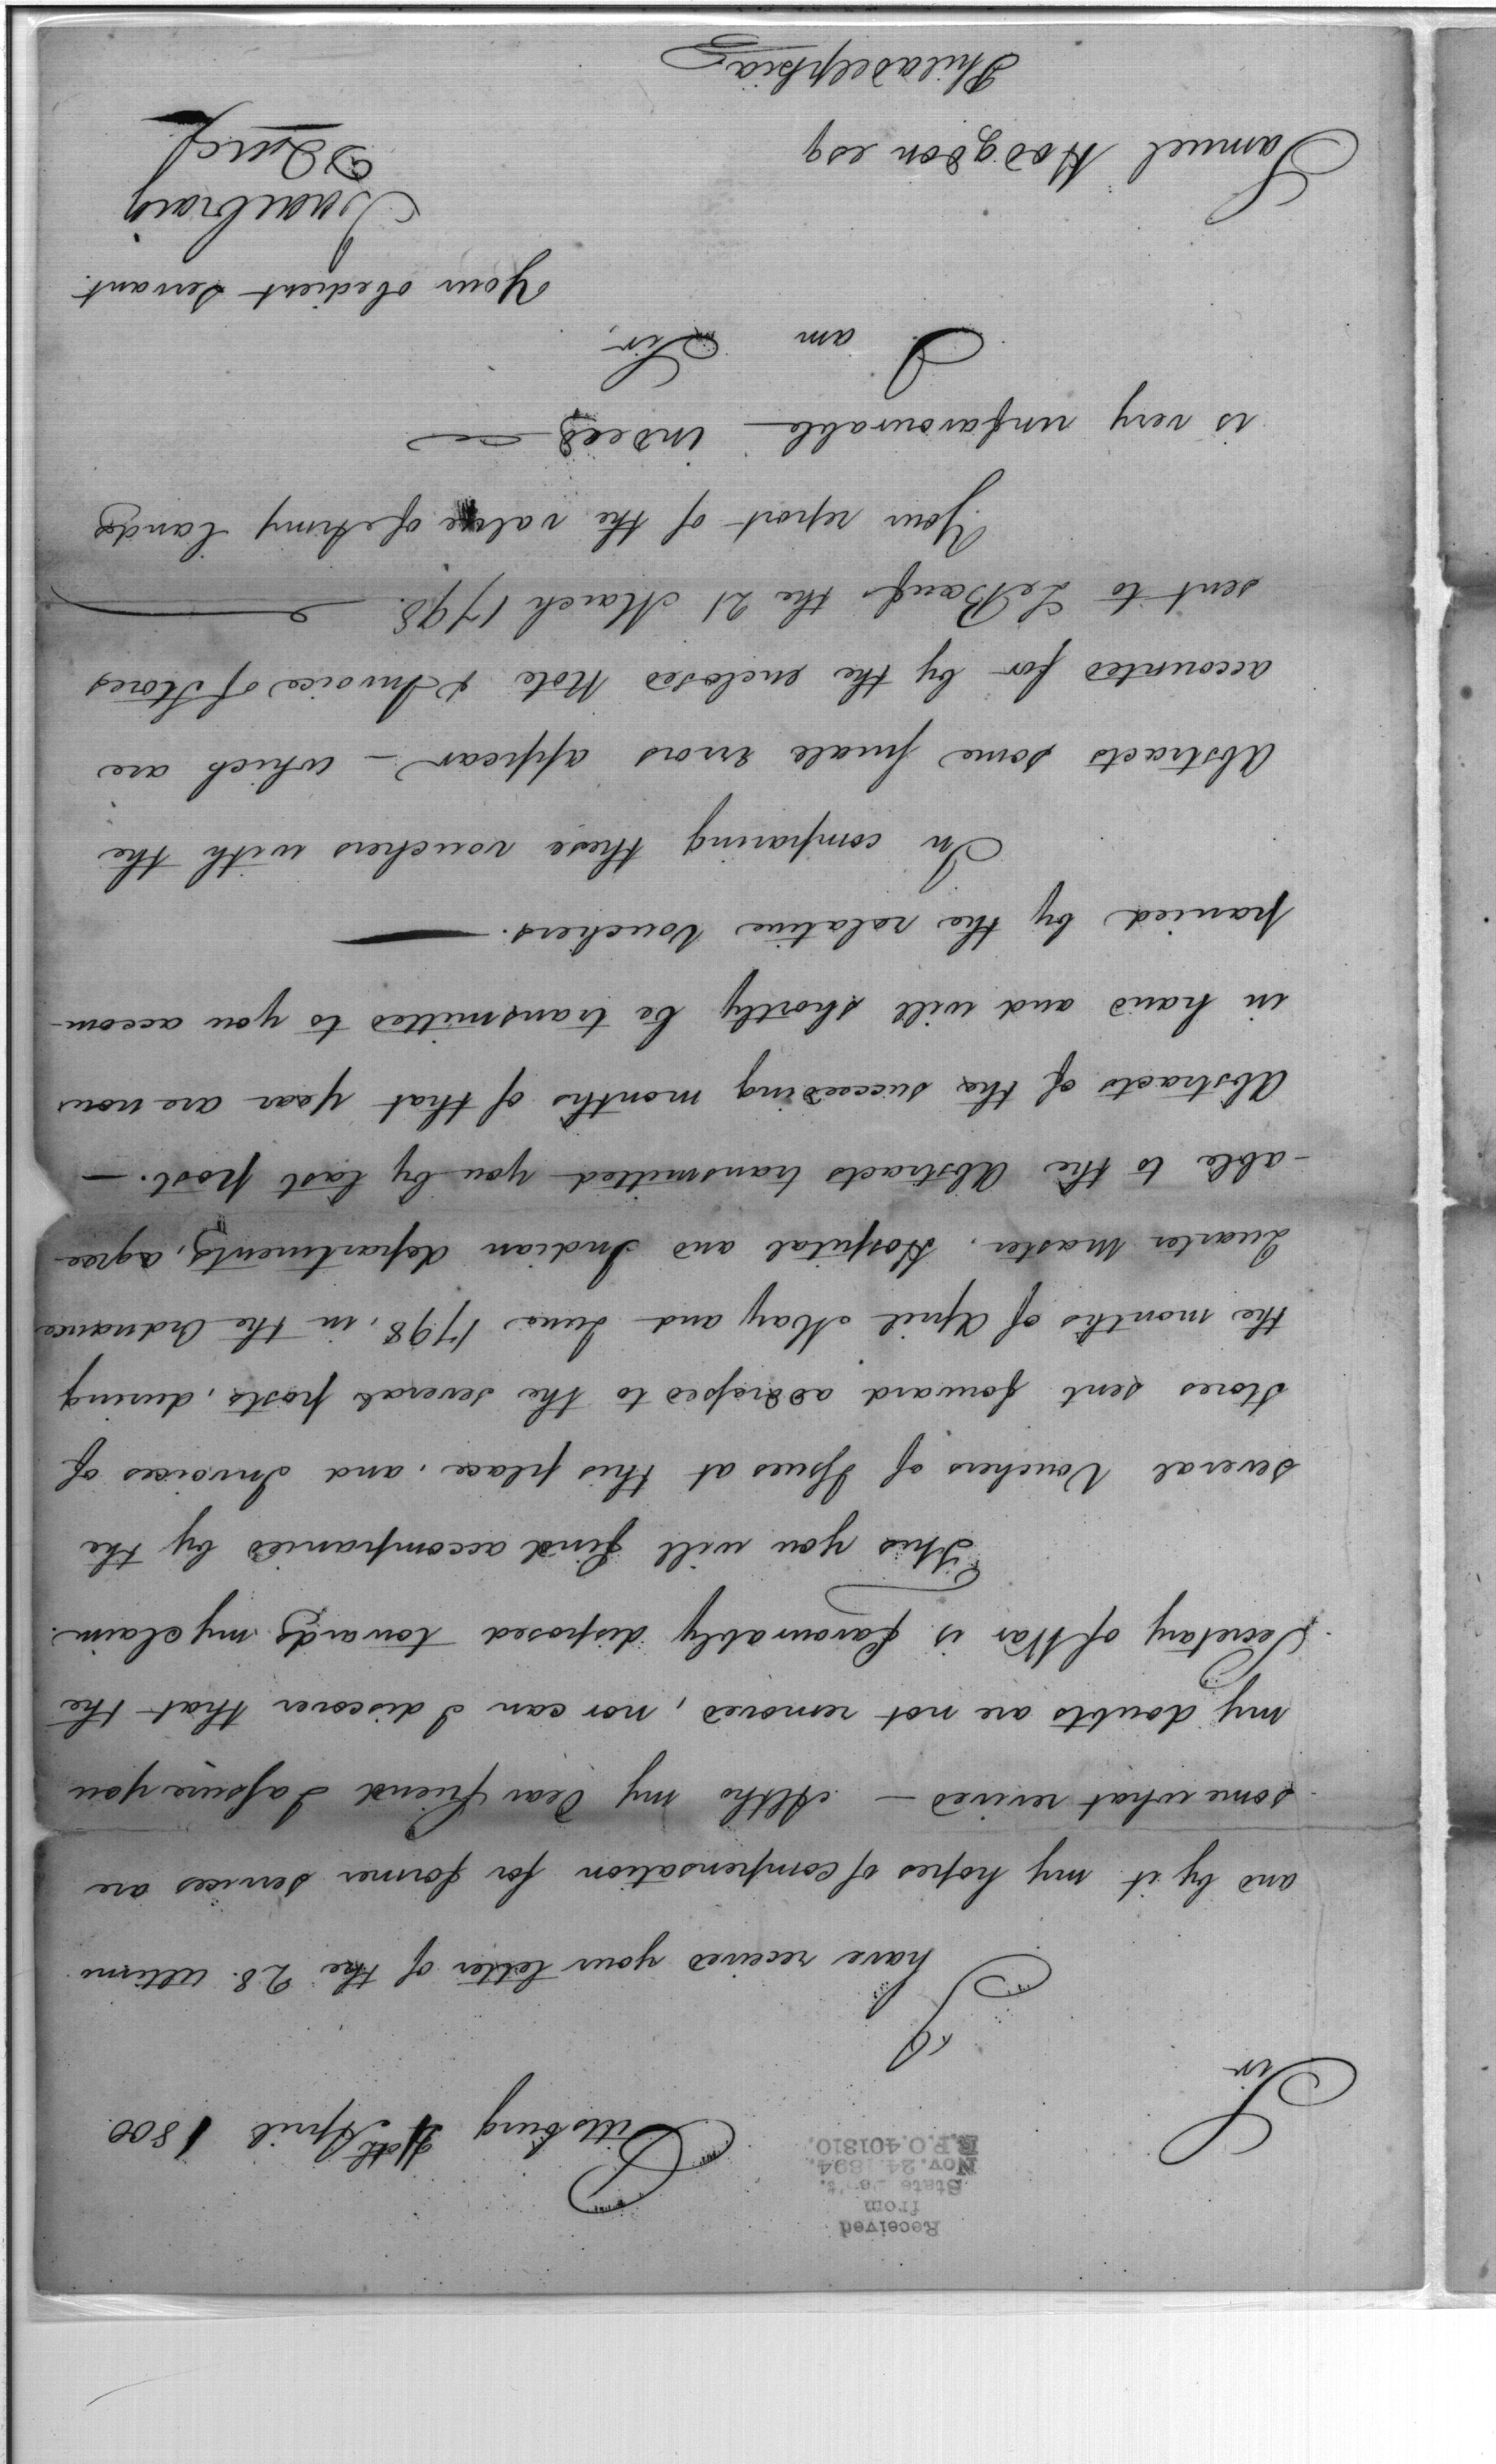 Received
from
State Dep't.
Nov. 24 1894.
R.P.O. 401810.
Pittsburg 4th April 1800.
Sir
I have received your letter of the 28. Ultimo
and by it my hopes of compensation for former services are
some what revived — Altho my Dear friend I assure you
my doubts are not removed, nor can I discover that the
Secretary of War is favourably disposed towards my claim.
This you will find accompanied by the
several Vouchers of Issues at this place, and Invoices of
Stores sent forward addressed to the several posts, during
the months of April May and June 1798, in the Ordnance
Quarter Master, Hospital and Indian departments, agree-
-able to the Abstracts transmitted you by last post. —
Abstracts of the succeeding months of that year are now
in hand and will shortly be transmitted to you accom-
panied by the relative Vouchers. —
In comparing these vouchers with the
Abstracts some small errors appear — which are
accounted for by the enclosed Note & Invoice of Stores
sent to LeBœuf the 21 March 1798.
Your report of the value of Army lands
is very unfavourable indeed —
I am Sir,
Your obedient Servant.
Isaac Craig
Samuel Hodgdon esq
Philadelphia